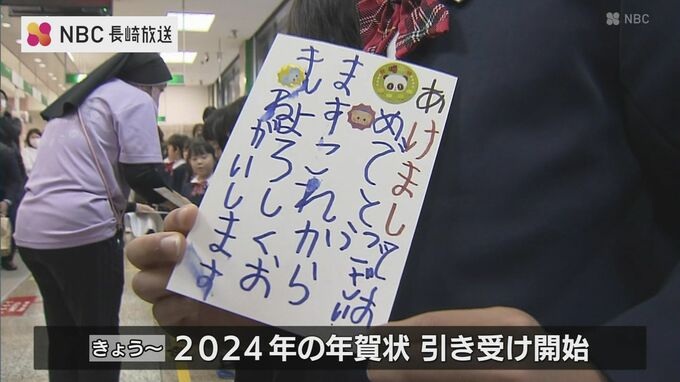 NBC 長崎放送
NBC
あけましてお
めでとうござい
ますこれから
もよろしくお
ねがいします
きょう〜 2024年の年賀状 引き受け開始